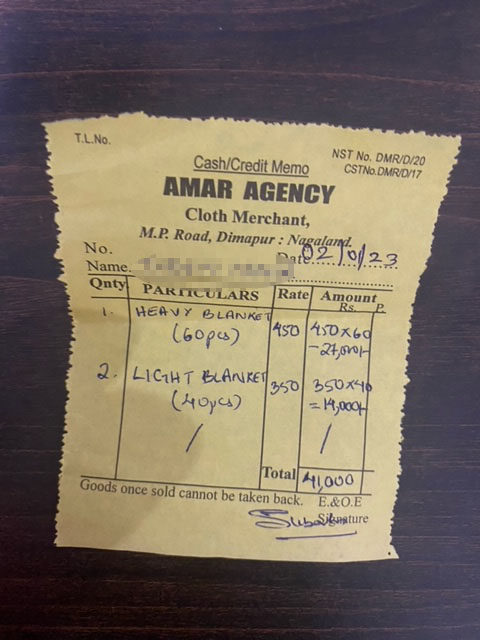 T.L.No.
NST No. DMR/D/20
CSTNo.DMR/D/17
Cash/Credit Memo
AMAR AGENCY
Cloth Merchant,
M.P. Road, Dimapur : Nagaland.
No. Date 02/0/23
Name.
Qnty PARTICULARS Rate Amount
Rs. P.
1. HEAVY BLANKET
(60pcs) 450 450x60
=27,000/-
2. LIGHT BLANKET 350 350x40
(40pcs) =14,000/-
/ /
Total 41,000
Goods once sold cannot be taken back. E.&O.E
Signature